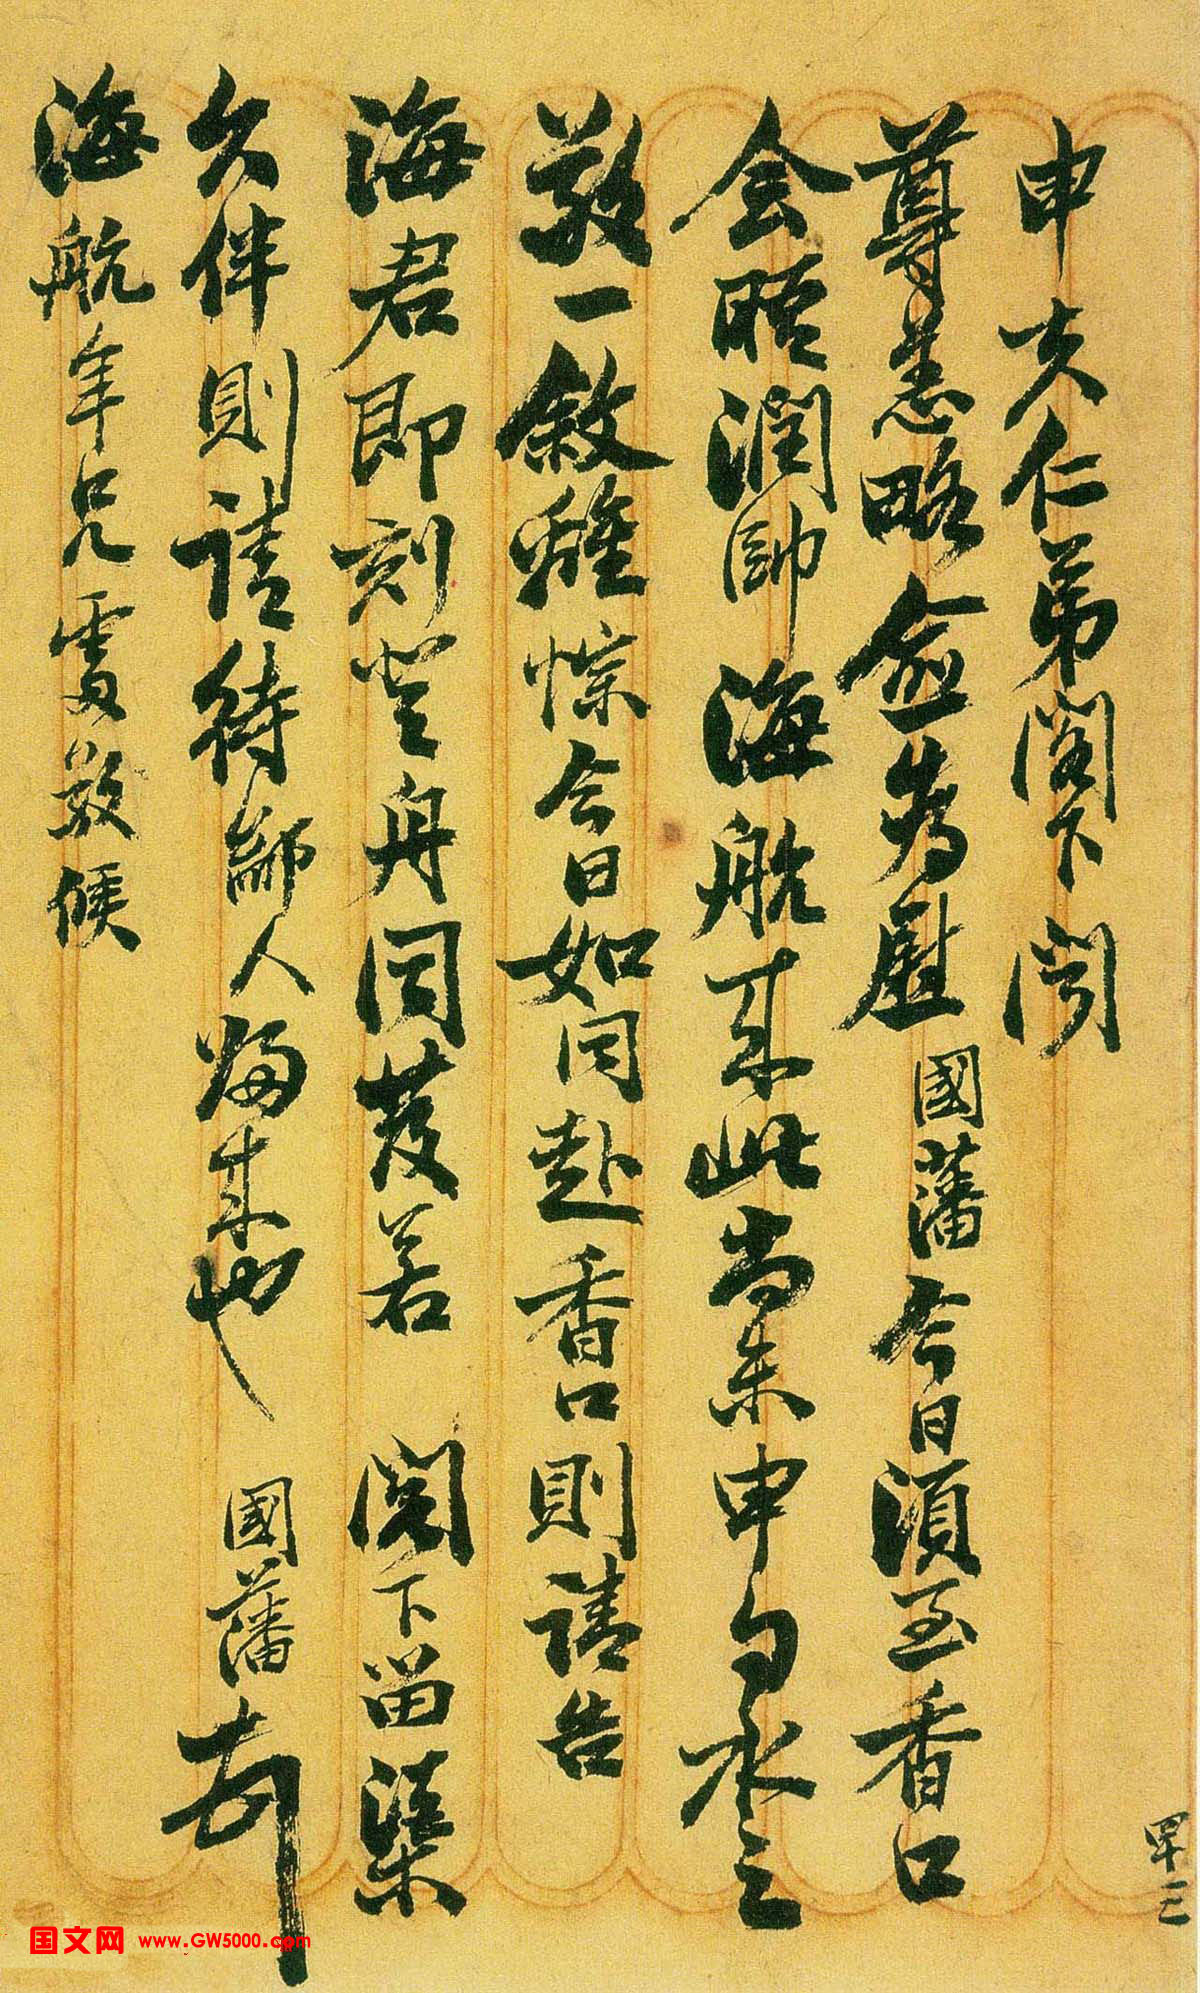 申夫仁弟閣下聞
尊恙略愈為慰國藩今日須至香口
会晤潤帥海航來此尚未申勺水之
敬一敘離悰今日如同赴香口則請告
海君即刻登舟同發若閣下留渠
久伴則請待鄙人歸來也國藩頓
海航年兄處敬候
四十三
国文网 www.GW5000.com